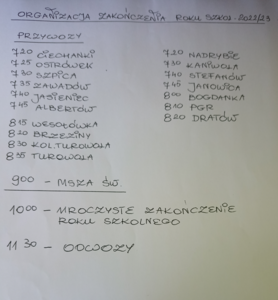 ORGANIZACJA ZAKOŃCZENIA ROKU SZKOL. 2022/23
PRZYWOZY
7 20 CIECHANKI
7 25 OSTRÓWEK
7 30 SZPICA
7 35 ZAWADÓW
7 40 JASIENIEC
7 45 ALBERTÓW
8 15 WESOŁÓWKA
8 20 BRZEZINY
8 30 KOL. TUROWOLA
8 35 TUROWOLA
7 20 NADRYBIE
7 30 KANIWOLA
7 40 STEFANÓW
7 45 JANOWICA
8 00 BOGDANKA
8 10 PGR
8 20 DRATÓW
9 00 - MSZA ŚW.
10 00 - UROCZYSTE ZAKOŃCZENIE
ROKU SZKOLNEGO
11 30 - ODWOZY